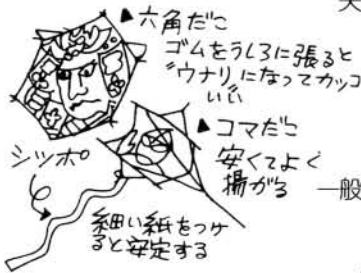 ▲六角だこ
ゴムをうしろに張ると
〝ウナリ〟になってカッコ
いい
▲コマだこ
安くてよく
揚がる
シッポ
細い紙をつけ
ると安定する
一般